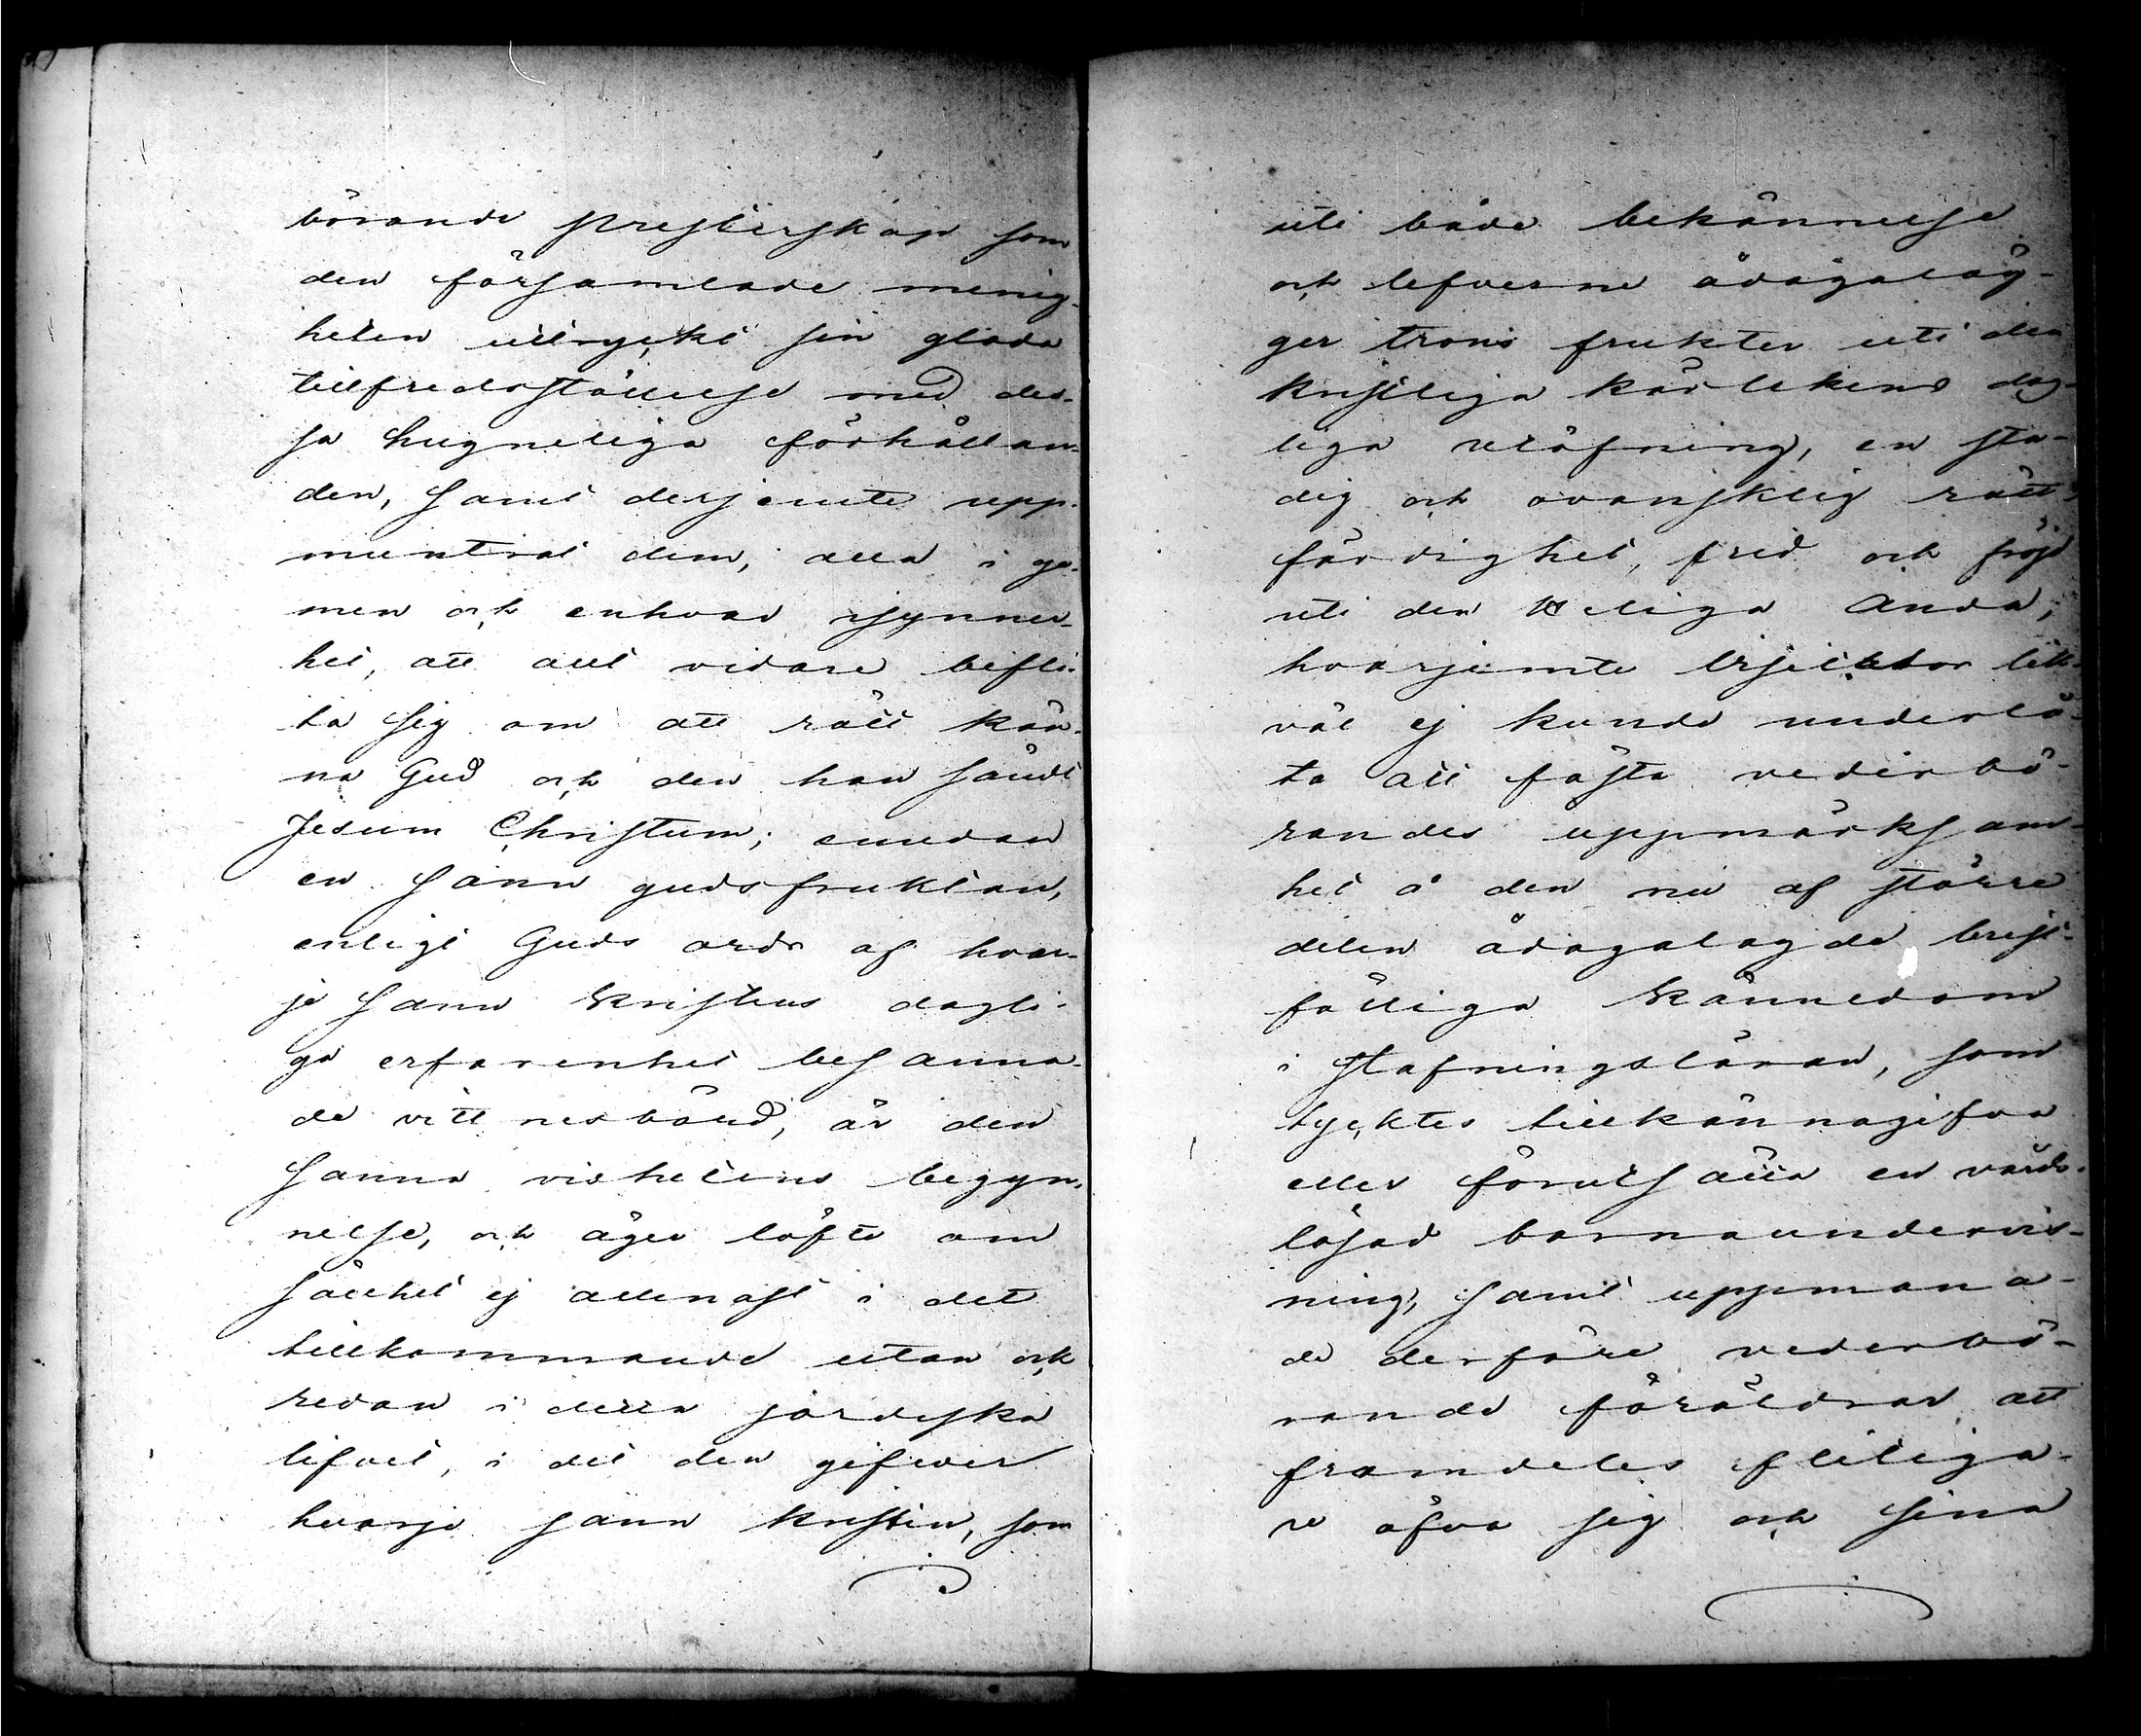 börande presterskap som
den församlade menig-
heten uttryckt sin glada
tillfredsställelse med des-
sa hugneliga förhållan-
den, samt derjemte upp-
muntrat dem, alla i ge-
men och enhvar isynner-
het, att allt vidare beflі-
ta sig om att rätt kän-
na Gud och den han sändt
Jesum Christum; emedan
en sann gudsfruktan,
enligt Guds ords af hvar-
je sann kristens dagli-
ga erfarenhet besanna-
de vittnesbörd, är den
sanna vishetens begyn-
nelse, och äger löfte om
sällhet ej allenast i det
tillkommande utan ock
redan i detta jordiska
lifvet, i det den gifwer
hvarje sann kristen, som
uti både bekännelse
och lefverne ådagaläg-
ger trons frukter uti den
kristliga kärlekens dag-
liga utöfning, en sta-
dig och ovansklig rätt-
färdighet, fred och fröjd
uti den Heliga Anda;
hvarjemte lik-
väl ej kunde underlå-
ta att fästa vederbö-
randes uppmärksam-
het å den nu af större
delen ådagalagde brist-
fälliga kännedom
i stafningsläran, som
tycktes tillkännagifva
eller förutsätta en vårds-
lösad barnaundervis-
ning, samt uppmana-
de derföre vederbö-
rande föräldrar att
framdeles flitiga-
re öfva sig och sina